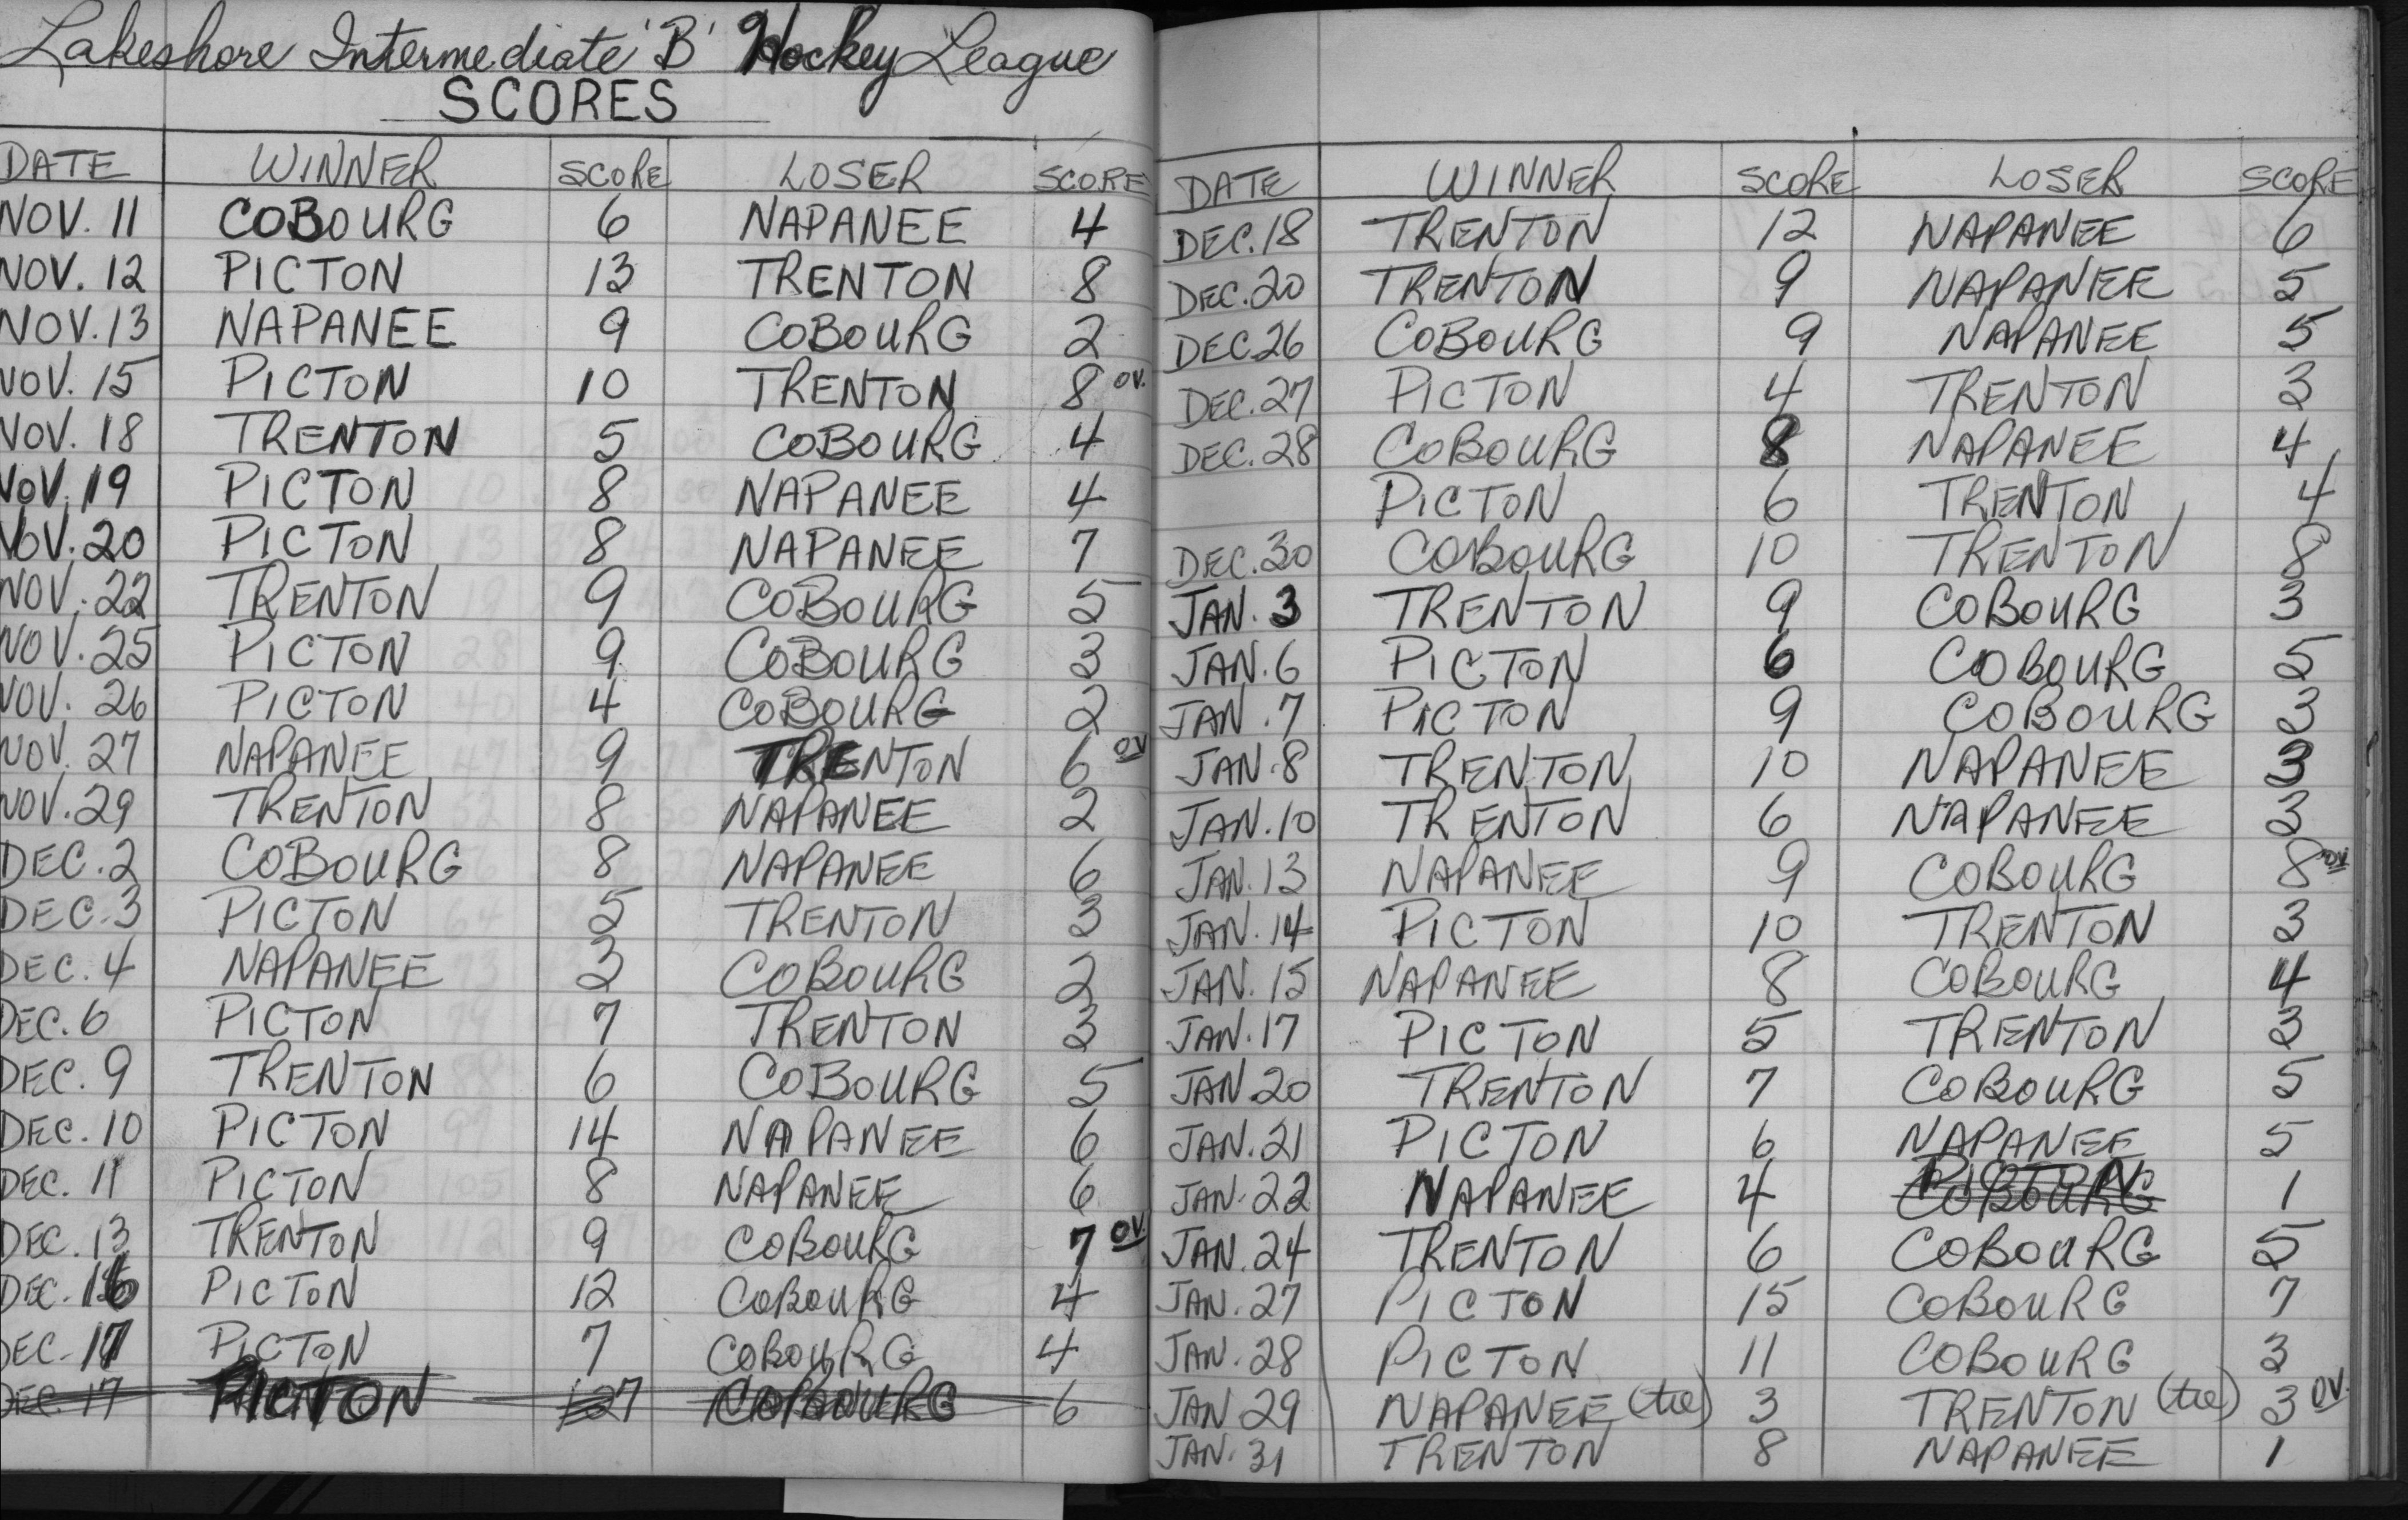 Lakeshore Intermediate 'B' Hockey League
SCORES
DATE WINNER SCORE LOSER SCORE
NOV. 11 COBOURG 6 NAPANEE 4
NOV. 12 PICTON 13 TRENTON 8
NOV. 13 NAPANEE 9 COBOURG 2
NOV. 15 PICTON 10 TRENTON 8 OV.
NOV. 18 TRENTON 5 COBOURG 4
NOV. 19 PICTON 8 NAPANEE 4
NOV. 20 PICTON 8 NAPANEE 7
NOV. 22 TRENTON 9 COBOURG 5
NOV. 25 PICTON 9 COBOURG 3
NOV. 26 PICTON 4 COBOURG 2
NOV. 27 NAPANEE 9 TRENTON 6 OV
NOV. 29 TRENTON 8 NAPANEE 2
DEC. 2 COBOURG 8 NAPANEE 6
DEC. 3 PICTON 5 TRENTON 3
DEC. 4 NAPANEE 3 COBOURG 2
DEC. 6 PICTON 7 TRENTON 3
DEC. 9 TRENTON 6 COBOURG 5
DEC. 10 PICTON 14 NAPANEE 6
DEC. 11 PICTON 8 NAPANEE 6
DEC. 13 TRENTON 9 COBOURG 7 OV.
DEC. 16 PICTON 12 COBOURG 4
DEC. 17 PICTON 7 COBOURG 4
DEC. 17 PICTON 7 COBOURG 6
DATE WINNER SCORE LOSER SCORE
DEC. 18 TRENTON 12 NAPANEE 6
DEC. 20 TRENTON 9 NAPANEE 5
DEC. 26 COBOURG 9 NAPANEE 5
DEC. 27 PICTON 4 TRENTON 3
DEC. 28 COBOURG 8 NAPANEE 4
PICTON 6 TRENTON 4
DEC. 30 COBOURG 10 TRENTON 8
JAN. 3 TRENTON 9 COBOURG 3
JAN. 6 PICTON 6 COBOURG 5
JAN. 7 PICTON 9 COBOURG 3
JAN. 8 TRENTON 10 NAPANEE 3
JAN. 10 TRENTON 6 NAPANEE 3
JAN. 13 NAPANEE 9 COBOURG 8 OV.
JAN. 14 PICTON 10 TRENTON 3
JAN. 15 NAPANEE 8 COBOURG 4
JAN. 17 PICTON 5 TRENTON 3
JAN. 20 TRENTON 7 COBOURG 5
JAN. 21 PICTON 6 NAPANEE 5
JAN. 22 NAPANEE 4 PICTON COBOURG 1
JAN. 24 TRENTON 6 COBOURG 5
JAN. 27 PICTON 15 COBOURG 7
JAN. 28 PICTON 11 COBOURG 3
JAN 29 NAPANEE (tie) 3 TRENTON (tie) 3 OV.
JAN. 31 TRENTON 8 NAPANEE 1